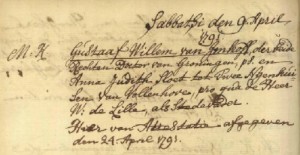 Sabbathi den 9 April
1791
M. H Gustaaf Willem van der
Rechten Doctor van Groningen, p.s. en
Anna Judith Sloet tot Twee Nyenhui
sen van Vollenhove, pro qua de Heer
W: de Lille, als
Hier van Attestatie afgegeven
den 24 April 1791.